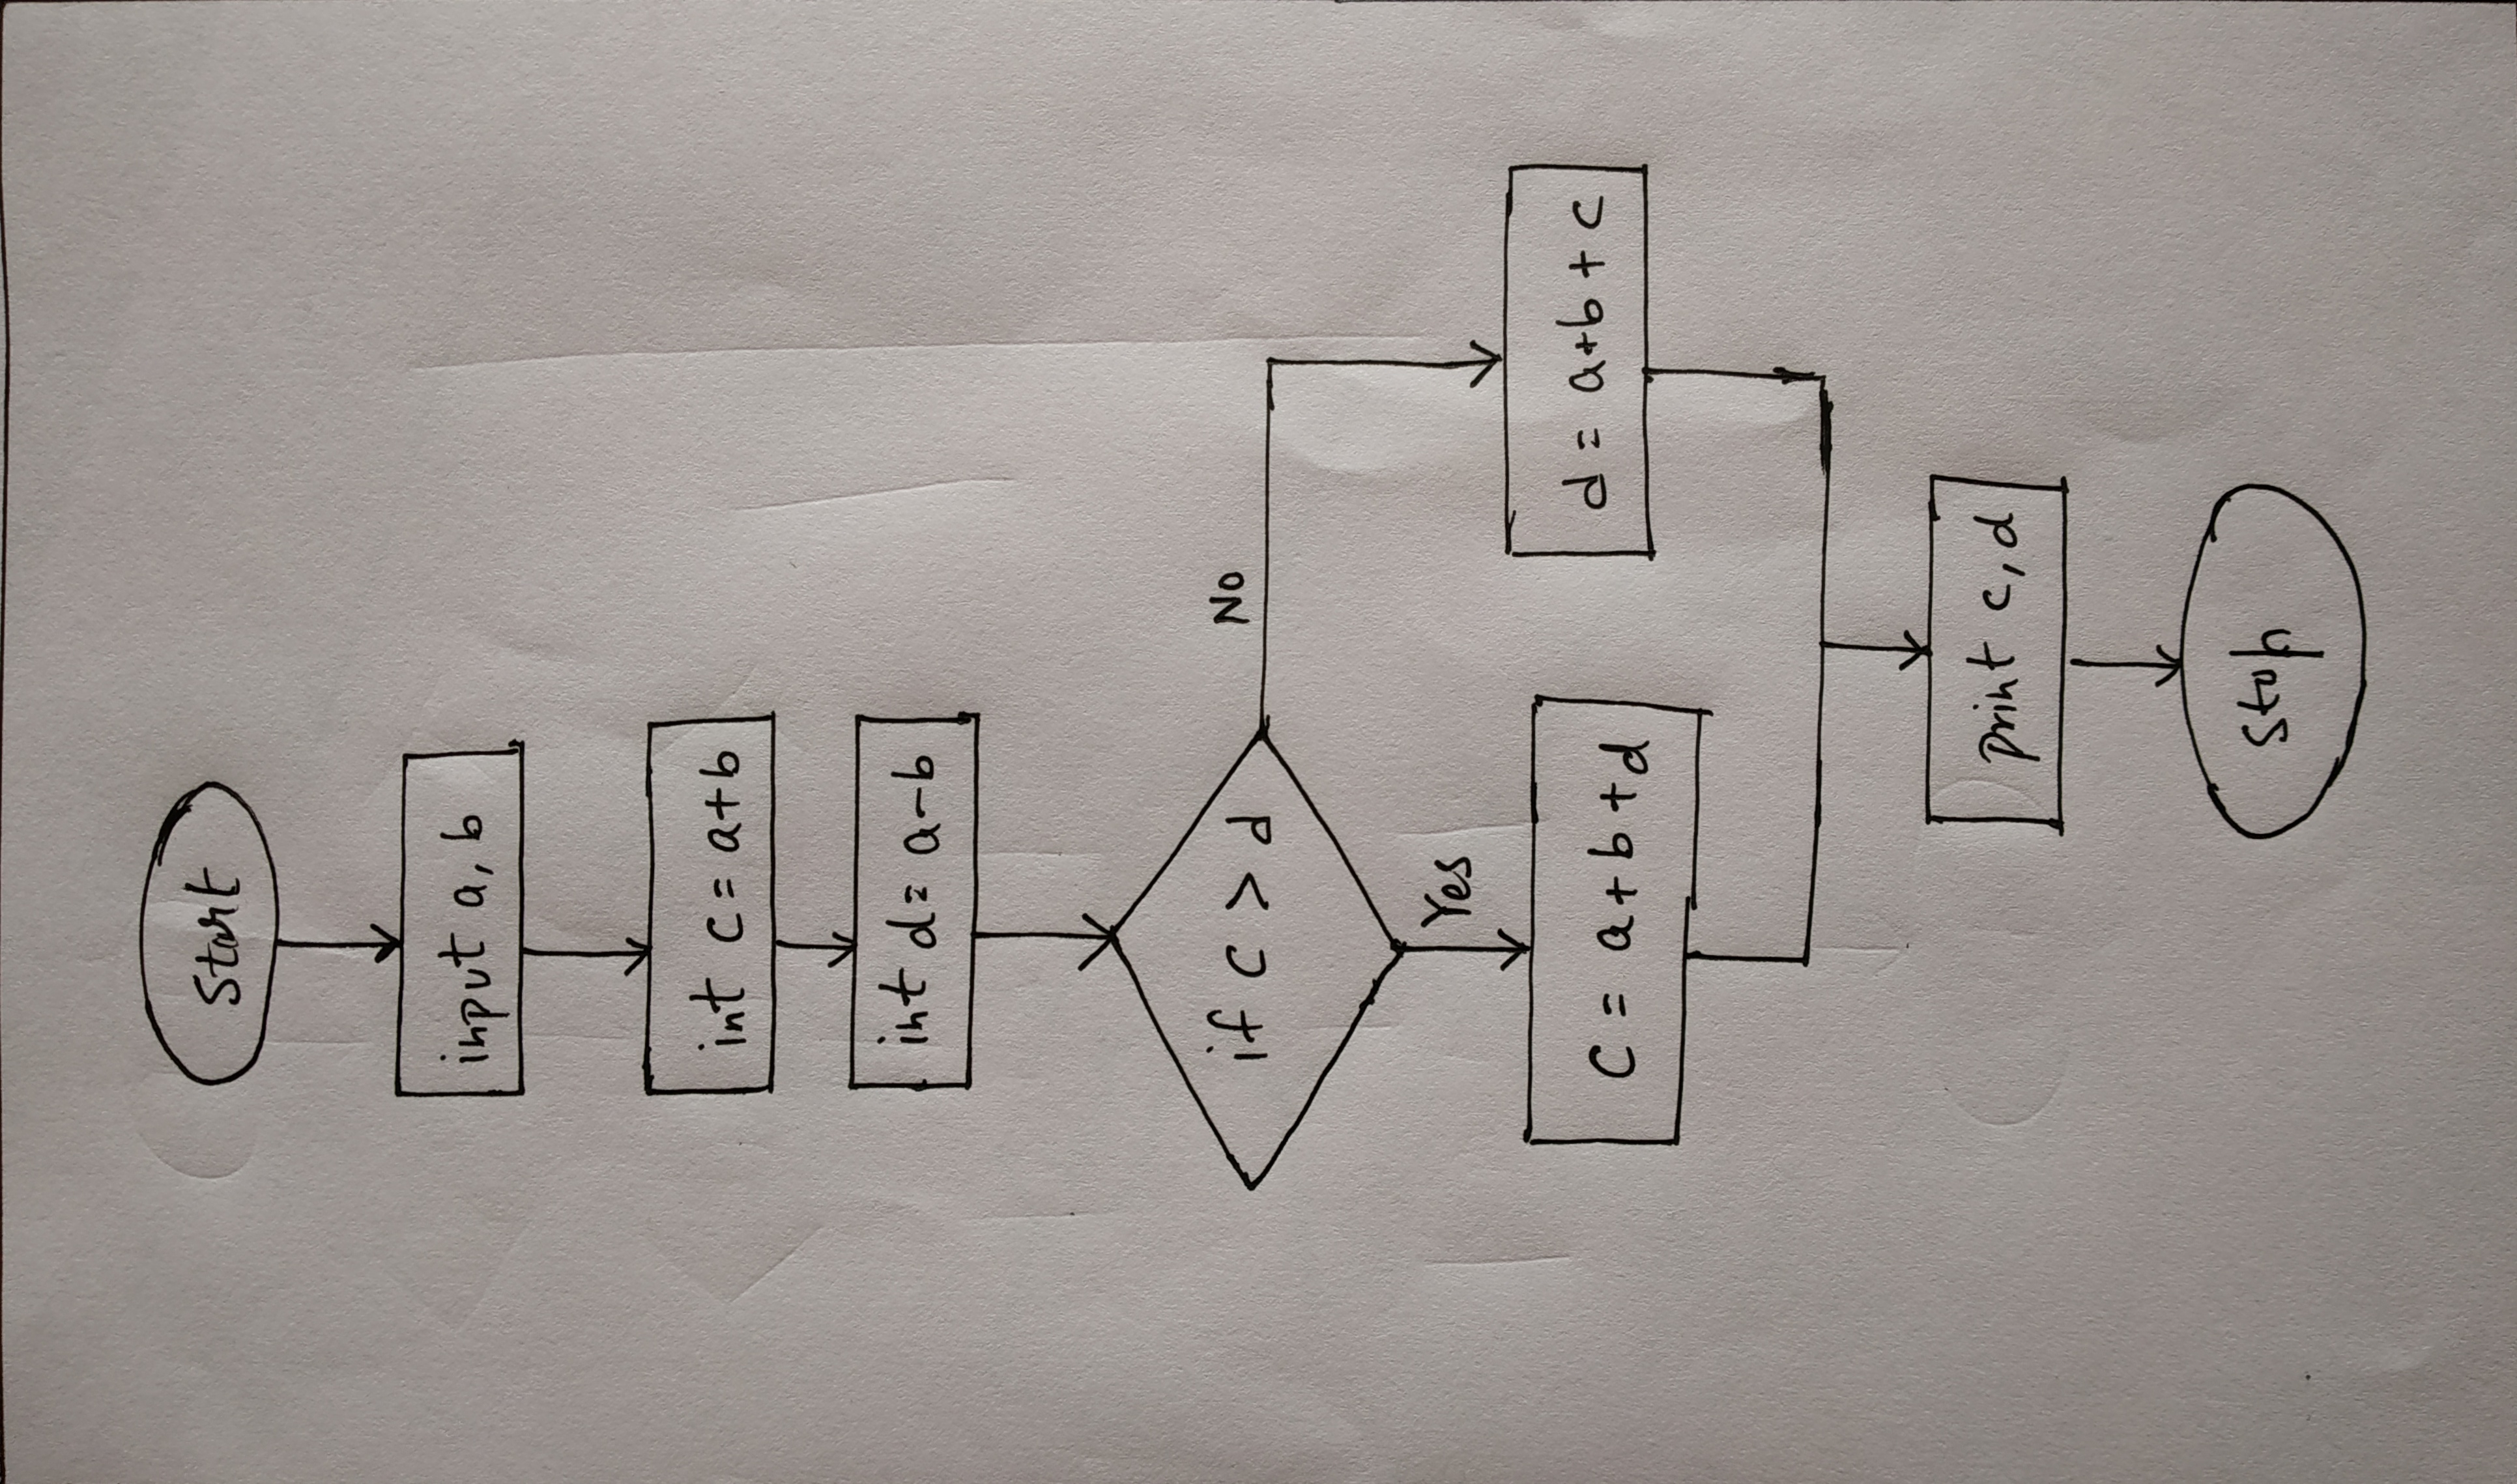 Start
input a, b
int c = a+b
int d = a-b
if c > d
No
Yes
C = a+b+d
d = a+b+c
print c, d
Stop